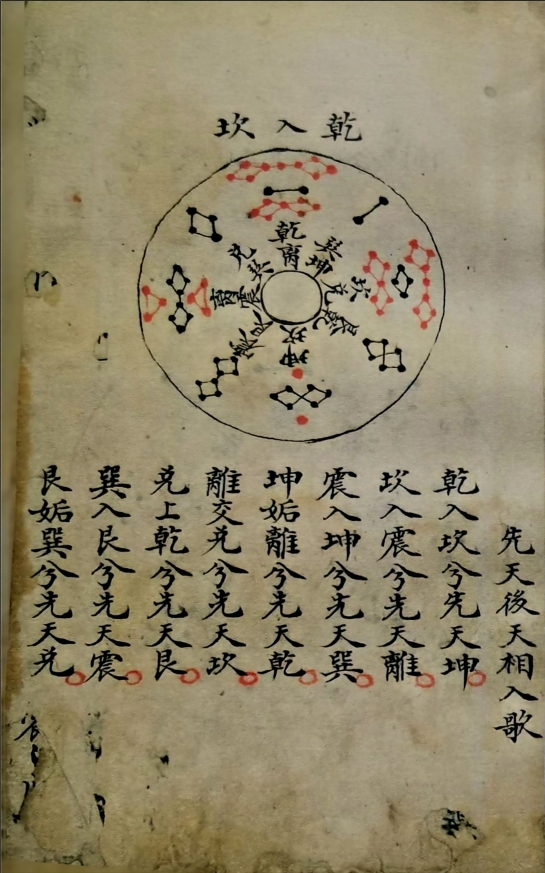 乾入坎
乾離
巽坤
坎兌
艮乾
坤坎
離震
先天後天相入歌
乾入坎兮先天坤
坎入震兮先天離
震入坤兮先天巽
坤姤離兮先天乾
離交兌兮先天坎
兌上乾兮先天艮
巽入艮兮先天震
艮姤巽兮先天兌